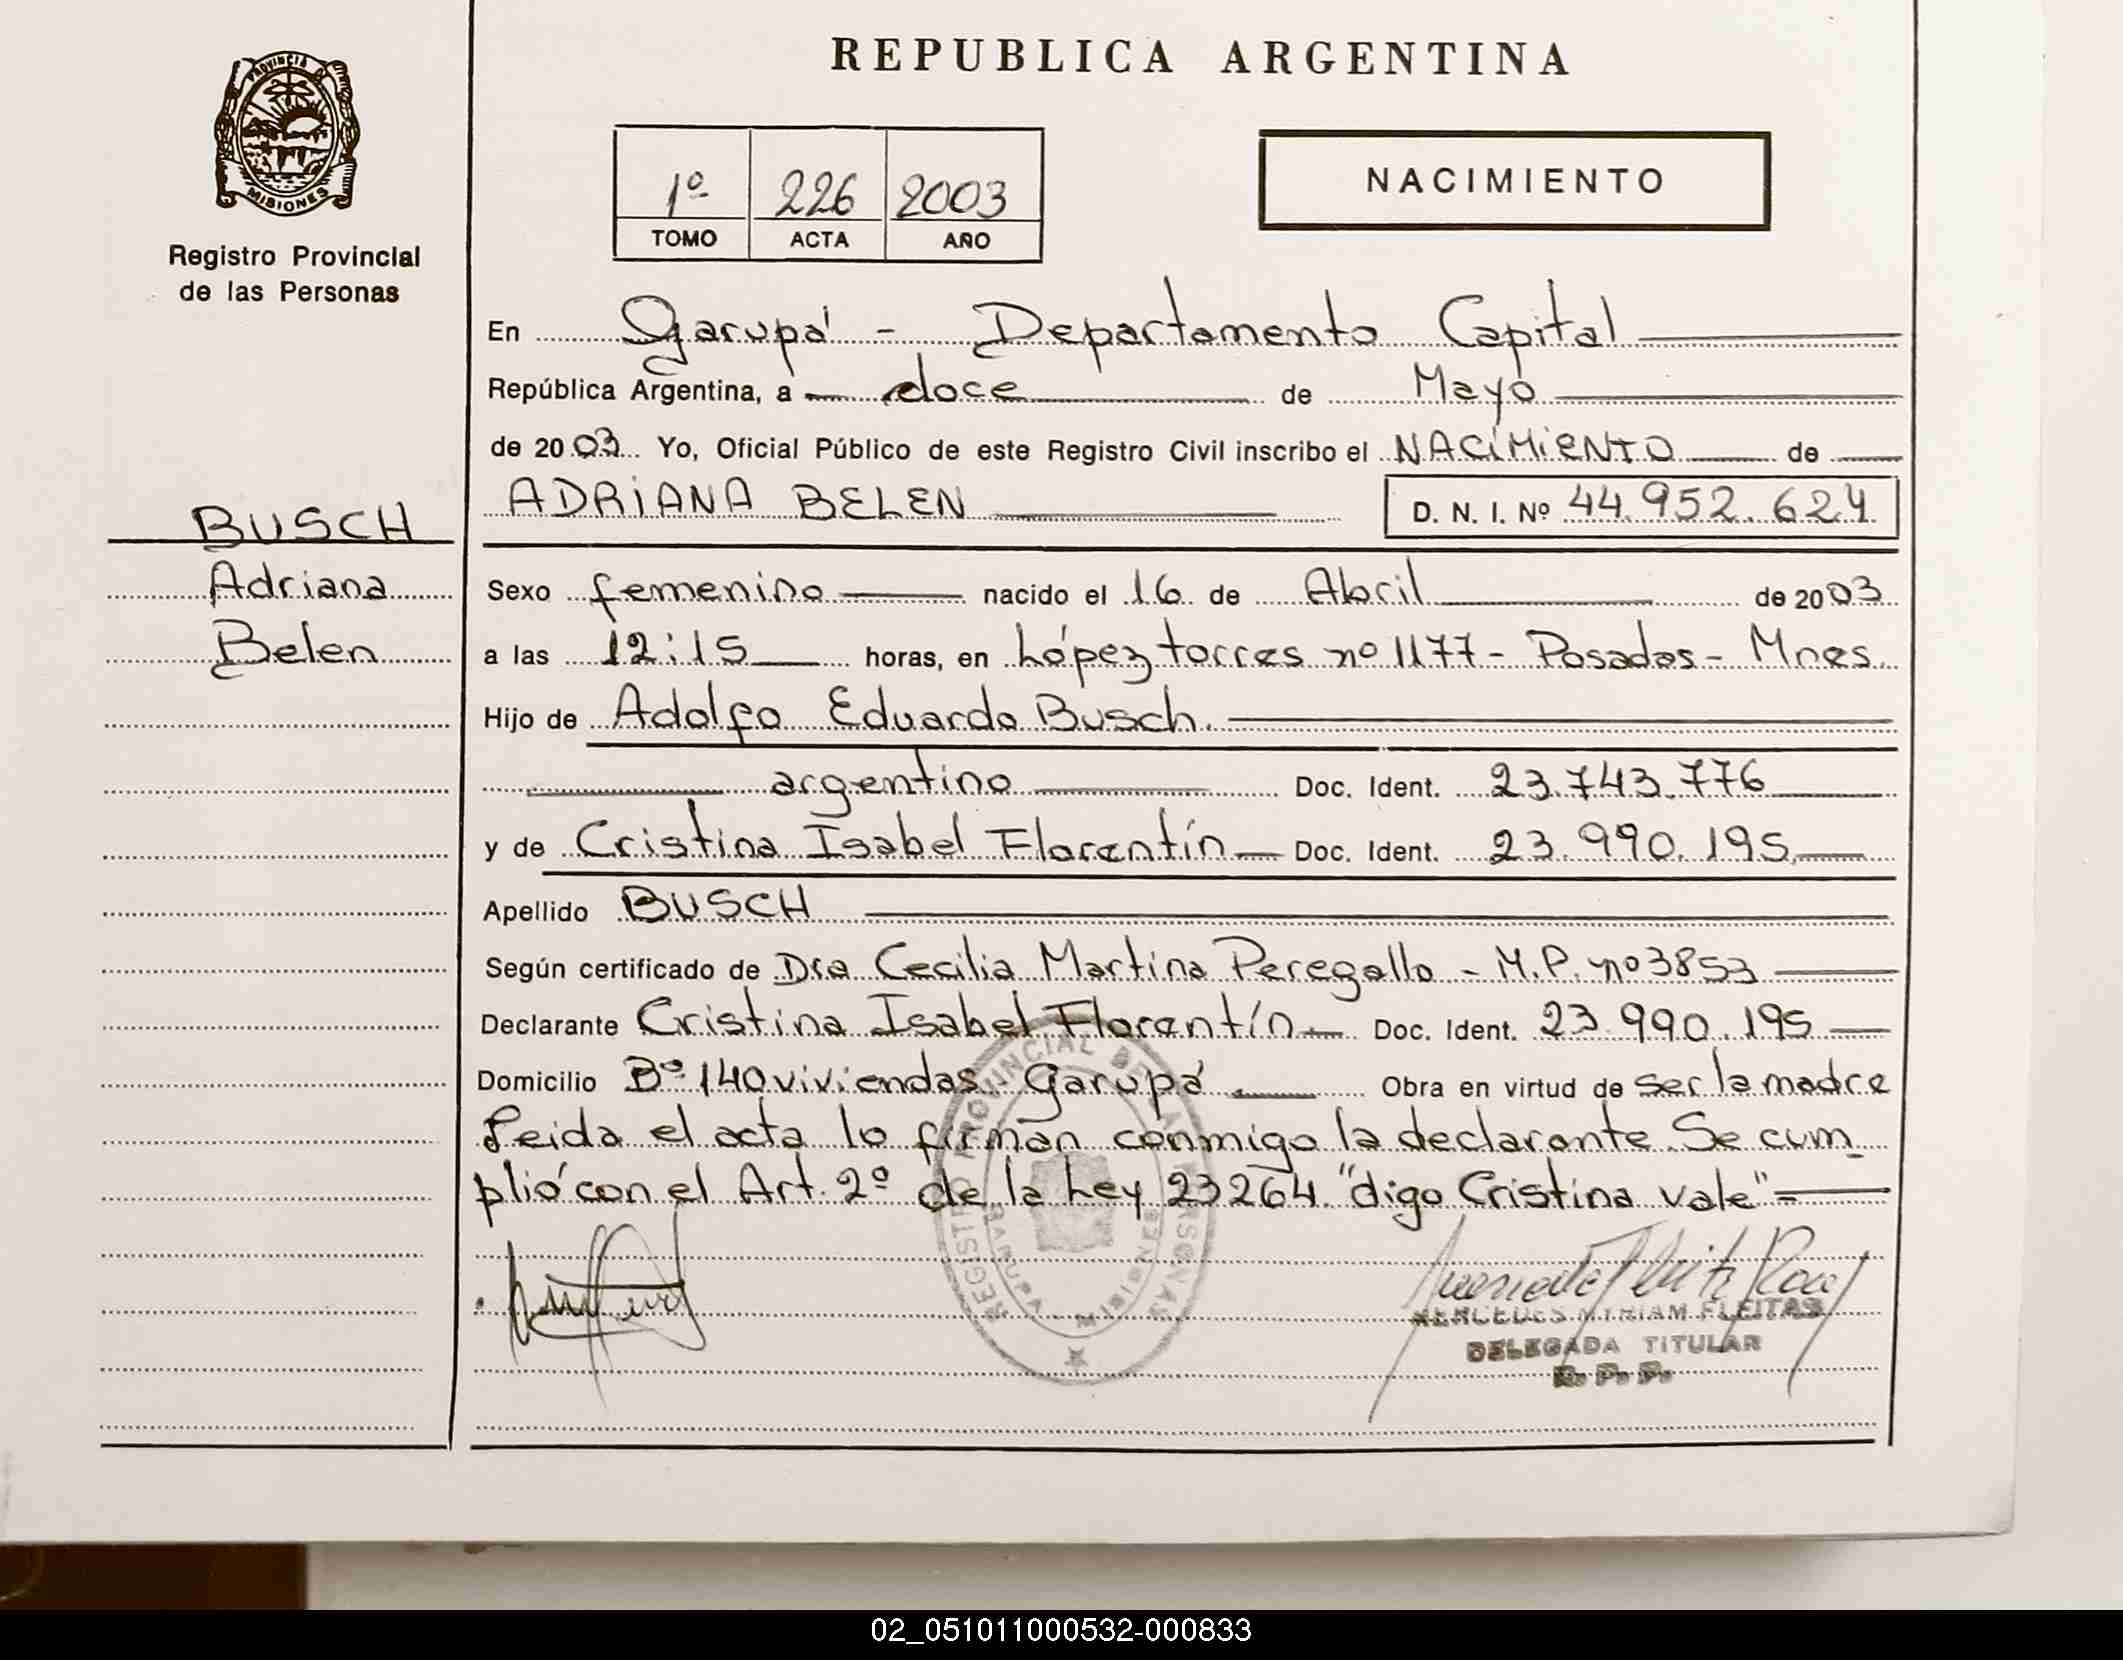 REPUBLICA ARGENTINA
PROVINCIA D
MISIONES
Registro Provincial
de las Personas
1º 226 2003
TOMO ACTA AÑO
NACIMIENTO
En Garupá - Departamento Capital
República Argentina, a doce de Mayo
de 2003 Yo, Oficial Público de este Registro Civil inscribo el NACIMIENTO de
ADRIANA BELEN D. N. I. Nº 44.952.624
BUSCH
Adriana
Belen
Sexo femenino nacido el 16 de Abril de 2003
a las 12:15 horas, en López torres nº 1177 - Posadas - Mnes
Hijo de Adolfo Eduardo Busch.
argentino Doc. Ident. 23.743.776
y de Cristina Isabel Florentín Doc. Ident. 23.990.195
Apellido BUSCH
Según certificado de Dra Cecilia Martina Peregallo - M.P. nº 3853
Declarante Cristina Isabel Florentín Doc. Ident. 23.990.195
Domicilio Bº 140 viviendas - Garupá. Obra en virtud de ser la madre
Leida el acta lo firman conmigo la declarante. Se cum
plió con el Art. 2º de la Ley 23264. "digo Cristina vale" -
REGISTRO PROVINCIAL DE LAS PERSONAS
GARUPA
MISIONES
MERCEDES MYRIAM FLEITAS
DELEGADA TITULAR
R. P. P.
02_051011000532-000833